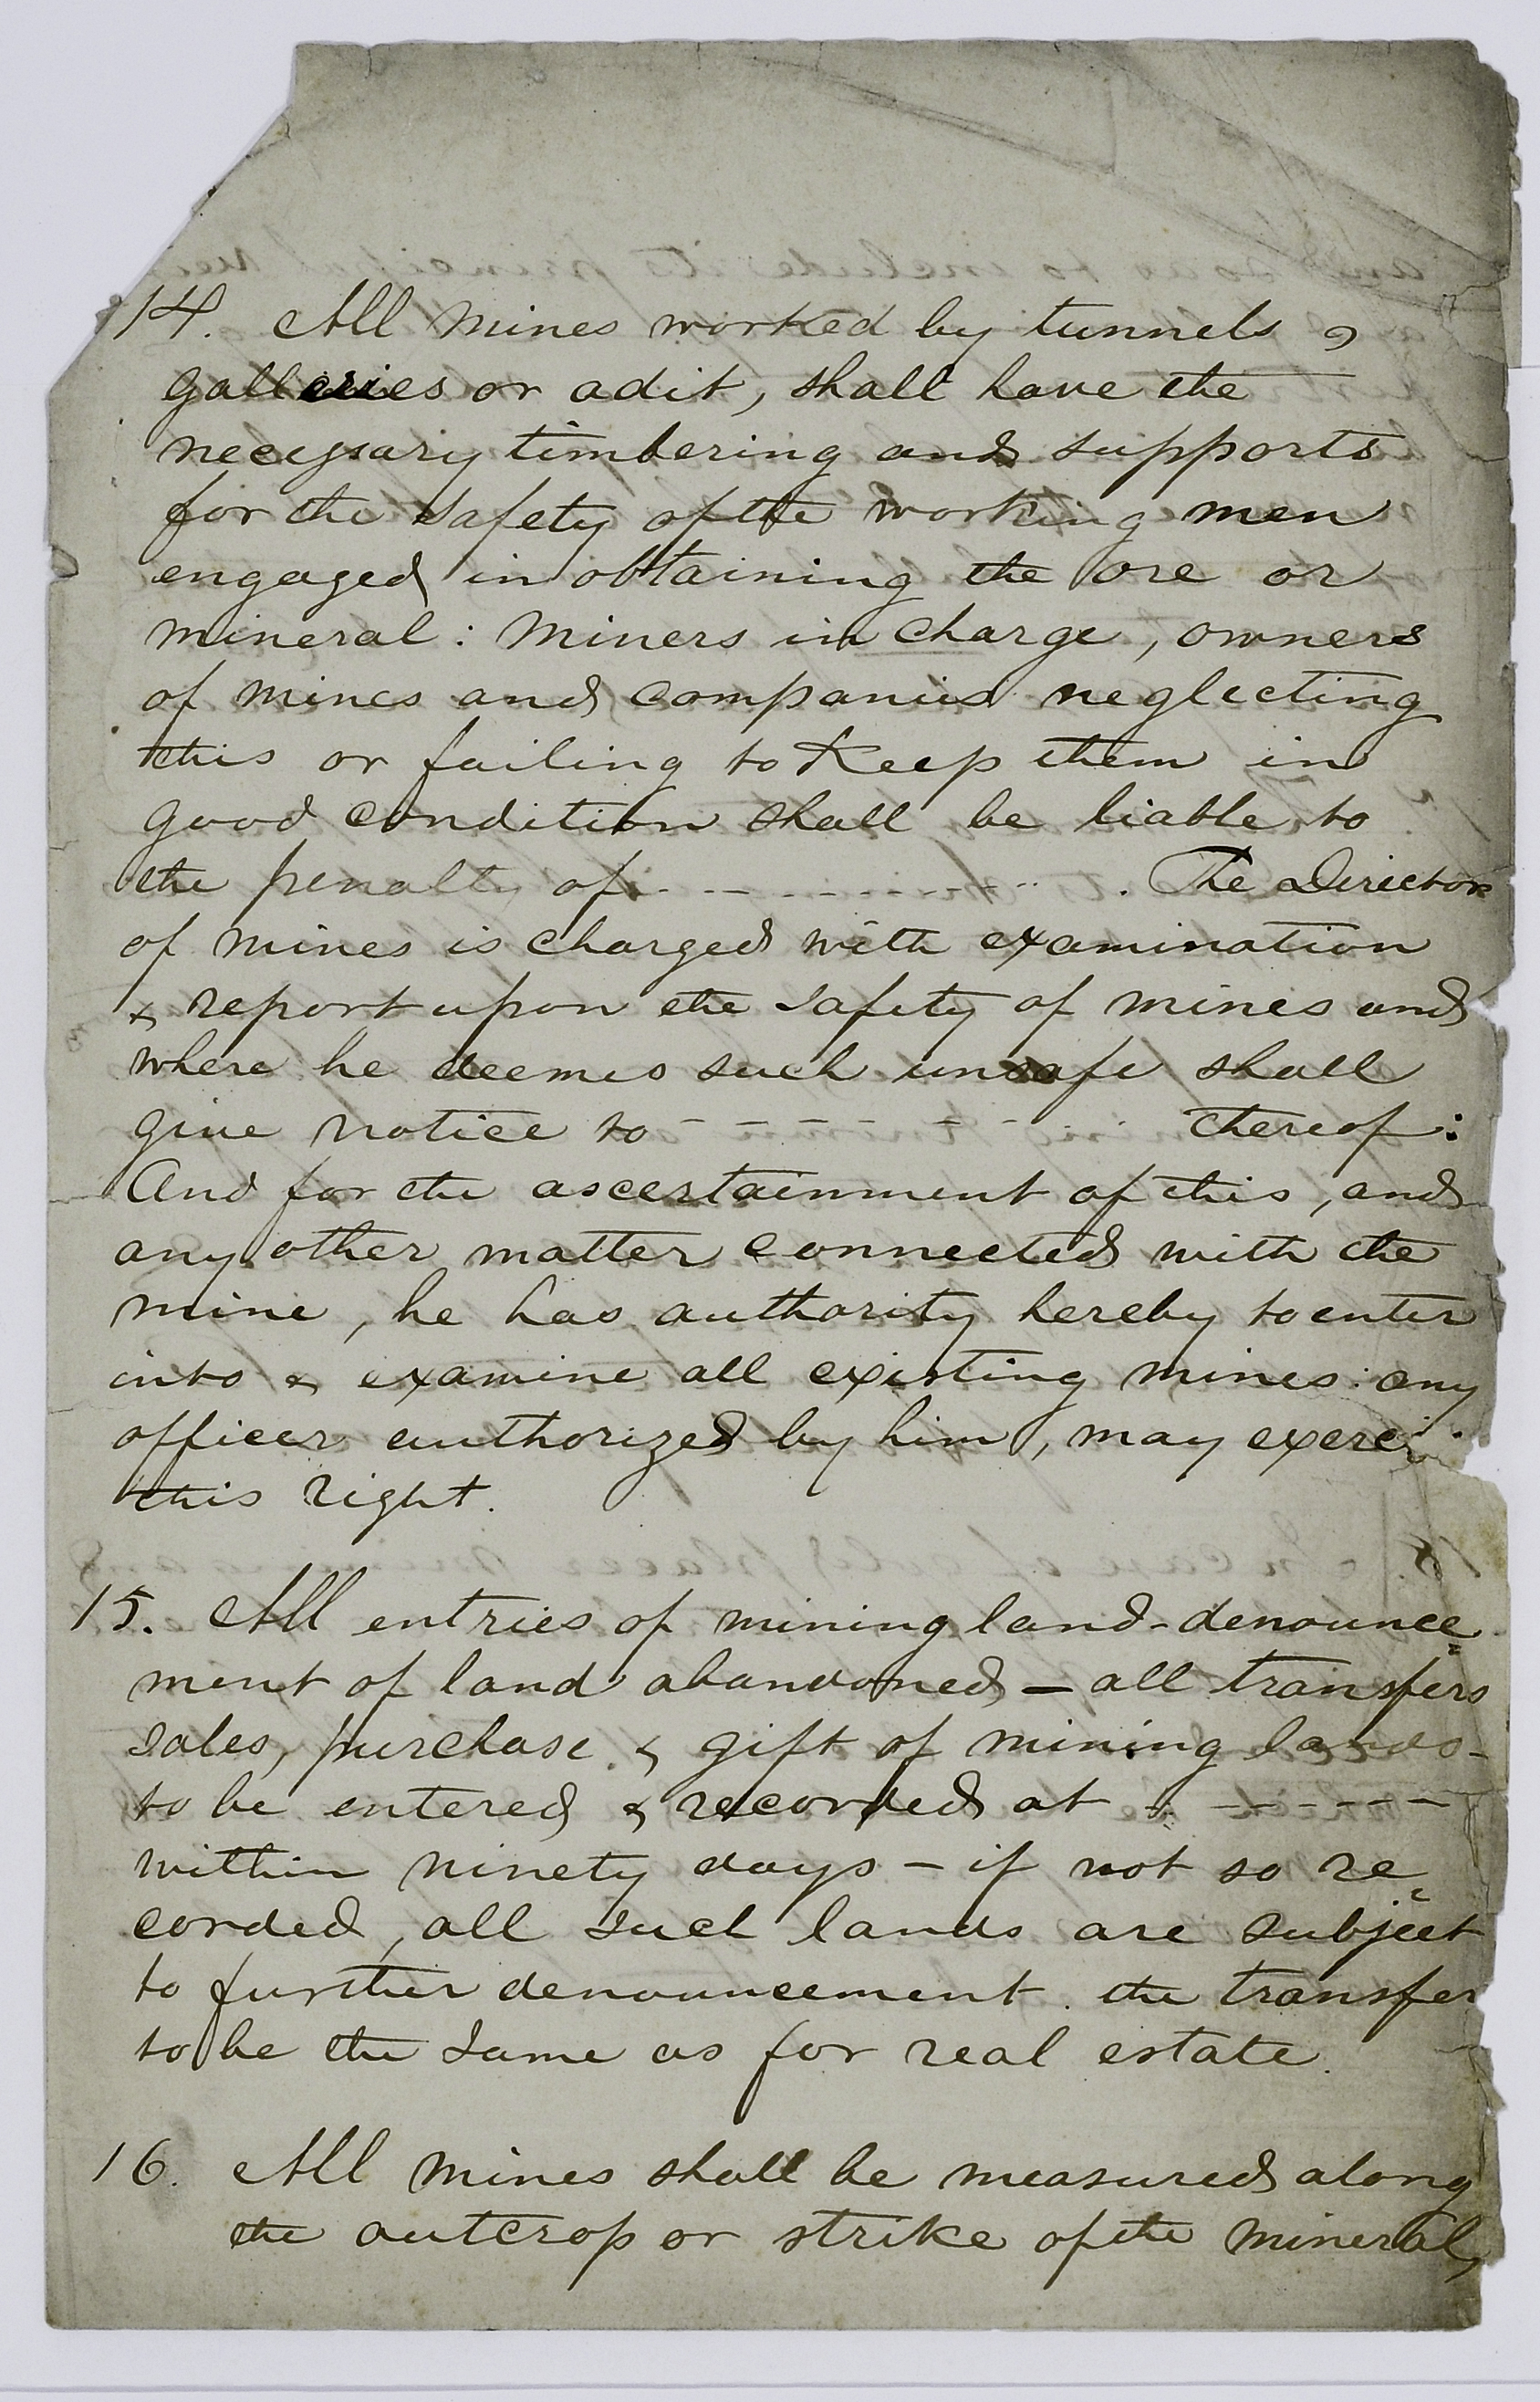 14. All mines worked by tunnels,
galleries or adit, shall have the
necessary timbering and supports
for the safety of the working men
engaged in obtaining the ore or
mineral: Miners in charge, owners
of mines and companies neglecting
this or failing to keep them in
good condition shall be liable to
the penalty of - - - - - - - - . The Director
of mines is charged with examination
& report upon the safety of mines and
where he deemes such unsafe shall
give notice to - - - - - - - - thereof:
And for the ascertainment of this, and
any other matter connected with the
mine, he has authority hereby to enter
into & examine all existing mines: any
officer authorized by him, may exerci
this right.
15. All entries of mining land - denounce=
ment of land abandoned - all transfers
sales, purchase & gift of mining lands -
to be entered & recorded at - - - - - -
within ninety days - if not so re=
corded, all such lands are subject
to further denouncement. the transfer
to be the same as for real estate.
16. All mines shall be measured along
the outcrop or strike of the mineral,